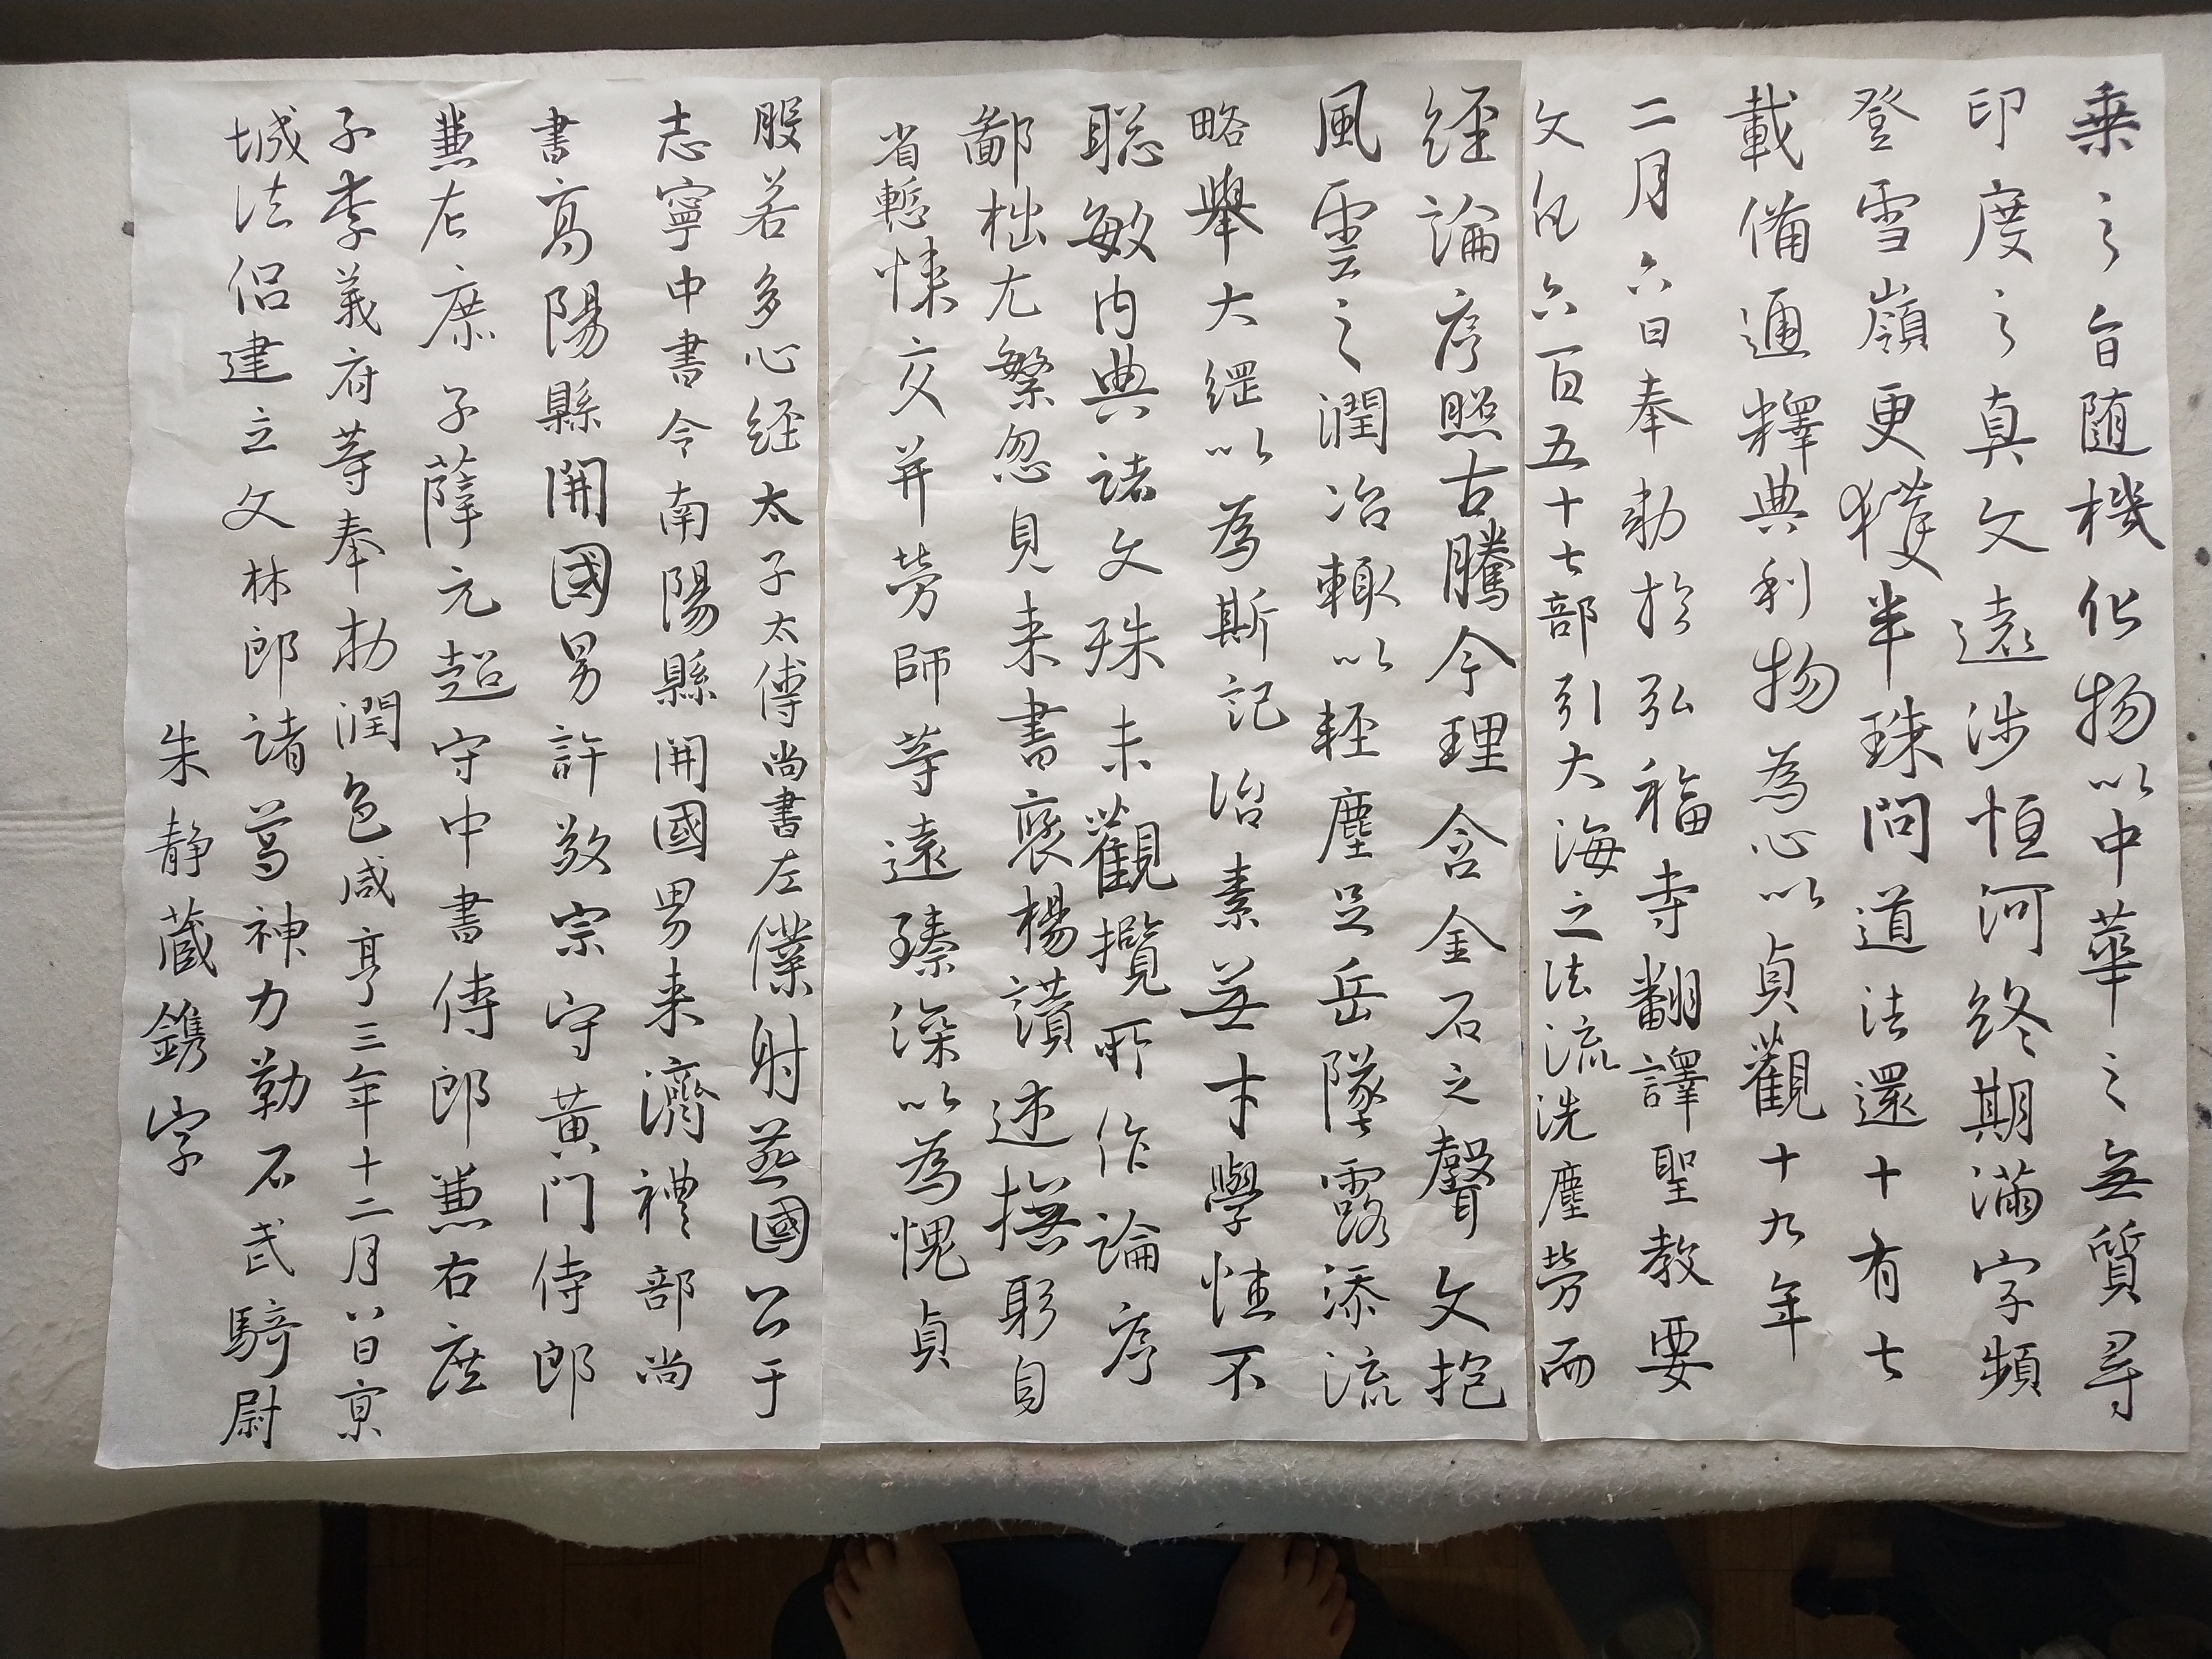 乗之旨随機化物以中華之無質尋
印度之真文遠涉恒河終期滿字頻
登雪嶺更獲半珠問道法還十有七
載備通釋典利物為心以貞觀十九年
二月六日奉勅於弘福寺翻譯聖教要
文凡六百五十七部引大海之法流洗塵勞而
經論序照古騰今理含金石之聲文抱
風雲之潤治輙以軽塵足岳墜露添流
略舉大綱以為斯記治素無才學性不
聡敏内典諸文殊未觀攬所作論序
鄙拙尤繁忽見来書褒揚讃述撫躬自
省慙悚交并勞師等遠臻深以為愧貞
般若多心經太子太傅尚書左僕射燕國公于
志寧中書令南陽縣開國男来濟禮部尚
書高陽縣開國男許敬宗守黄門侍郎
兼左庶子薛元超守中書侍郎兼右庶
子李義府等奉勅潤色咸亨三年十二月八日京
城法侣建立文林郎諸葛神力勒石武騎尉
朱静蔵鐫字